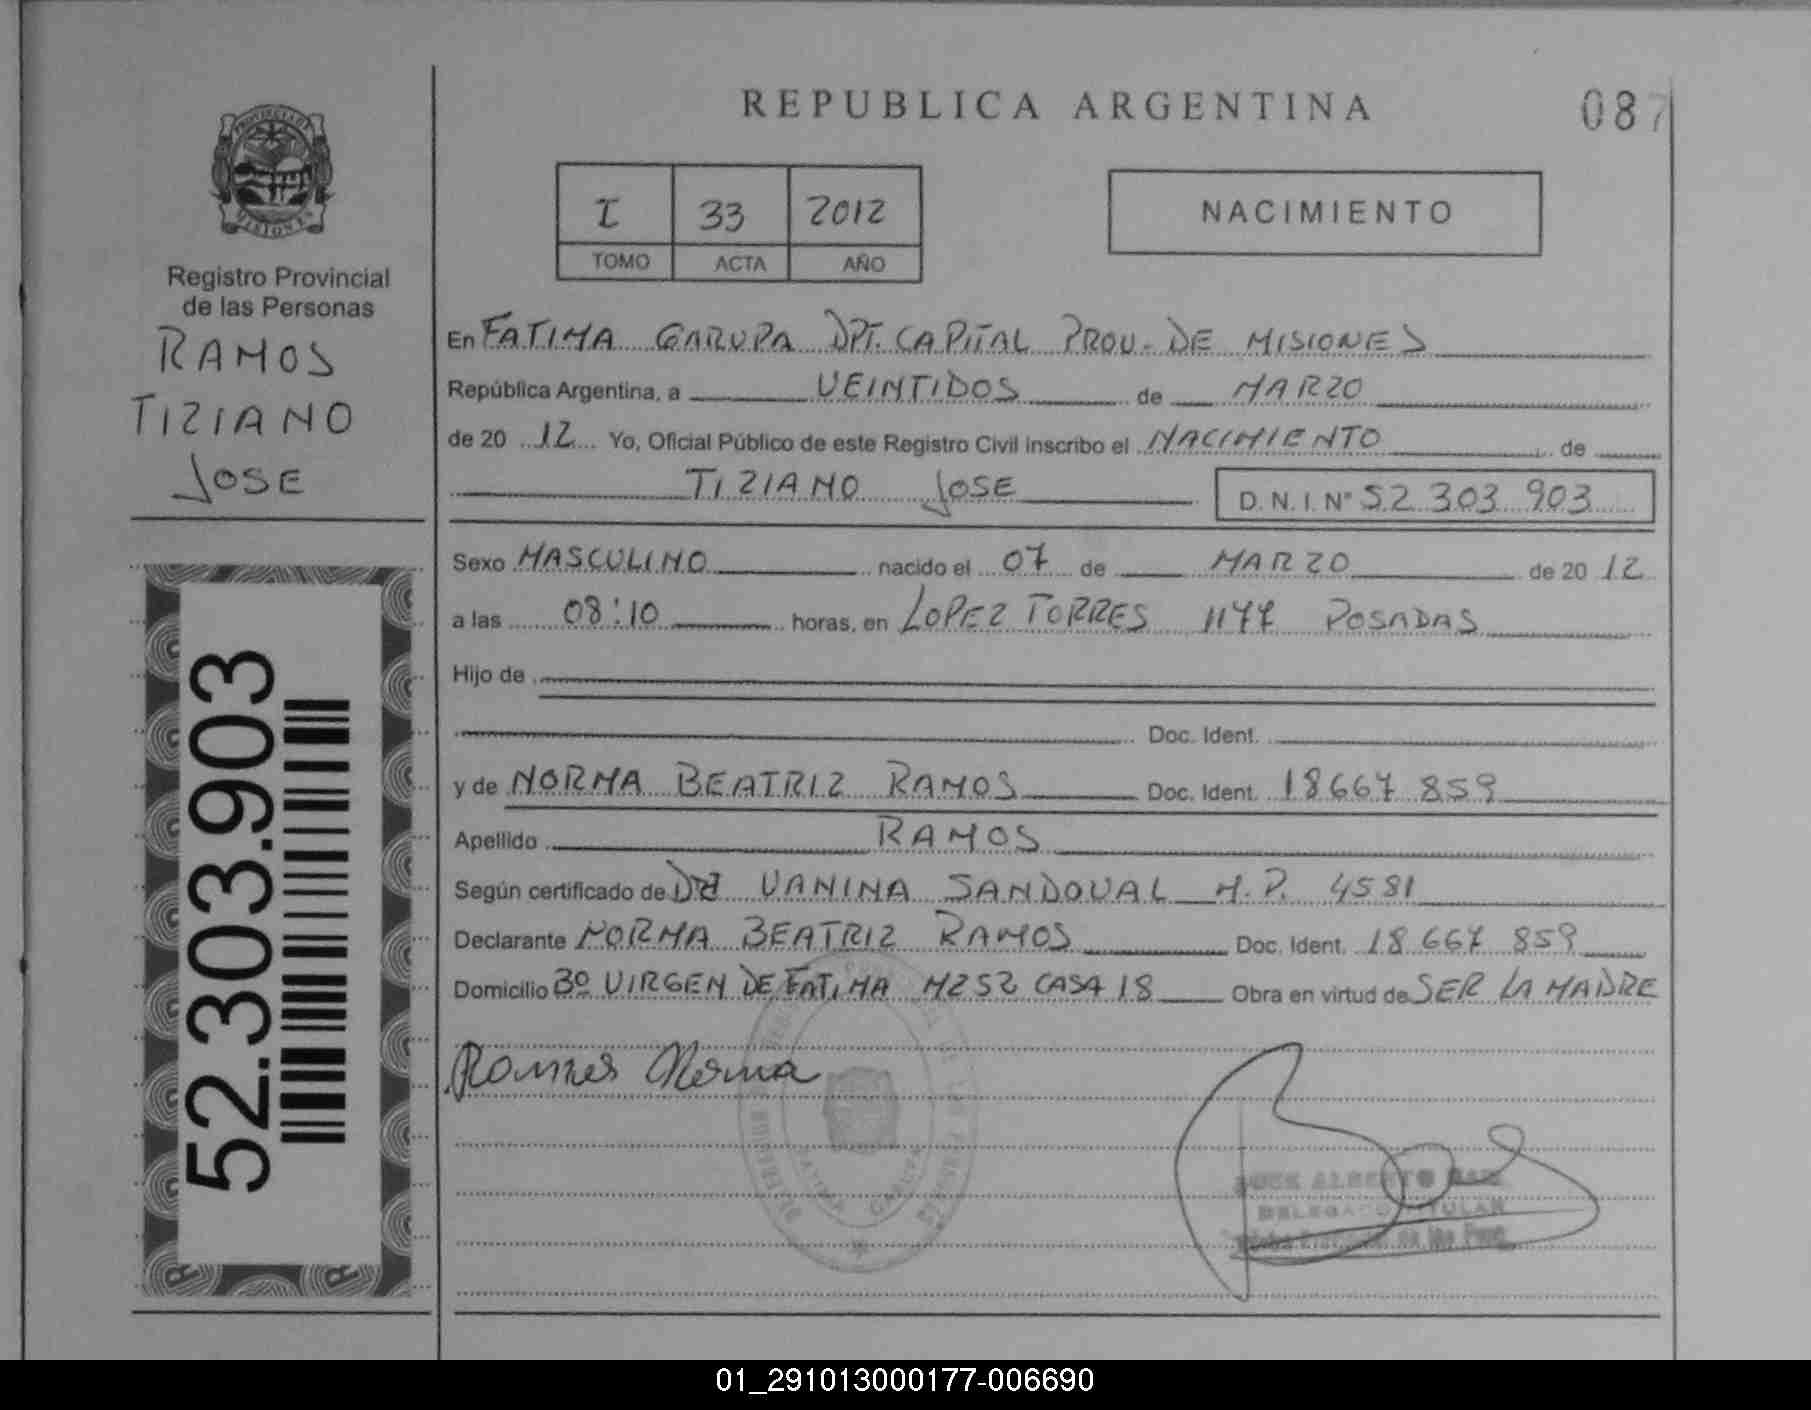 REPUBLICA ARGENTINA
087
PROVINCIA DE
MISIONES
Registro Provincial
de las Personas
RAMOS
TIZIANO
JOSE
I 33 2012
TOMO ACTA AÑO
NACIMIENTO
En FATIMA GARUPA DPT. CAPITAL PROV. DE MISIONES
República Argentina, a VEINTIDOS de MARZO
de 20 12 Yo, Oficial Público de este Registro Civil inscribo el NACIMIENTO de
TIZIANO JOSE D. N. I. N° 52 303 903
Sexo MASCULINO nacido el 07 de MARZO de 20 12
a las 08:10 horas, en LOPEZ TORRES 1177 POSADAS
Hijo de
Doc. Ident.
y de NORMA BEATRIZ RAMOS Doc. Ident. 18667 859
Apellido RAMOS
Según certificado de DRA VANINA SANDOVAL M.P. 4581
Declarante NORMA BEATRIZ RAMOS Doc. Ident. 18 667 859
Domicilio Bº VIRGEN DE FATIMA MZ52 CASA 18 Obra en virtud de SER LA MADRE
Ramos Norma
FATIMA GARUPA
ALBERTO
DELEGADO TITULAR
de las Pers.
52.303.903
01_291013000177-006690